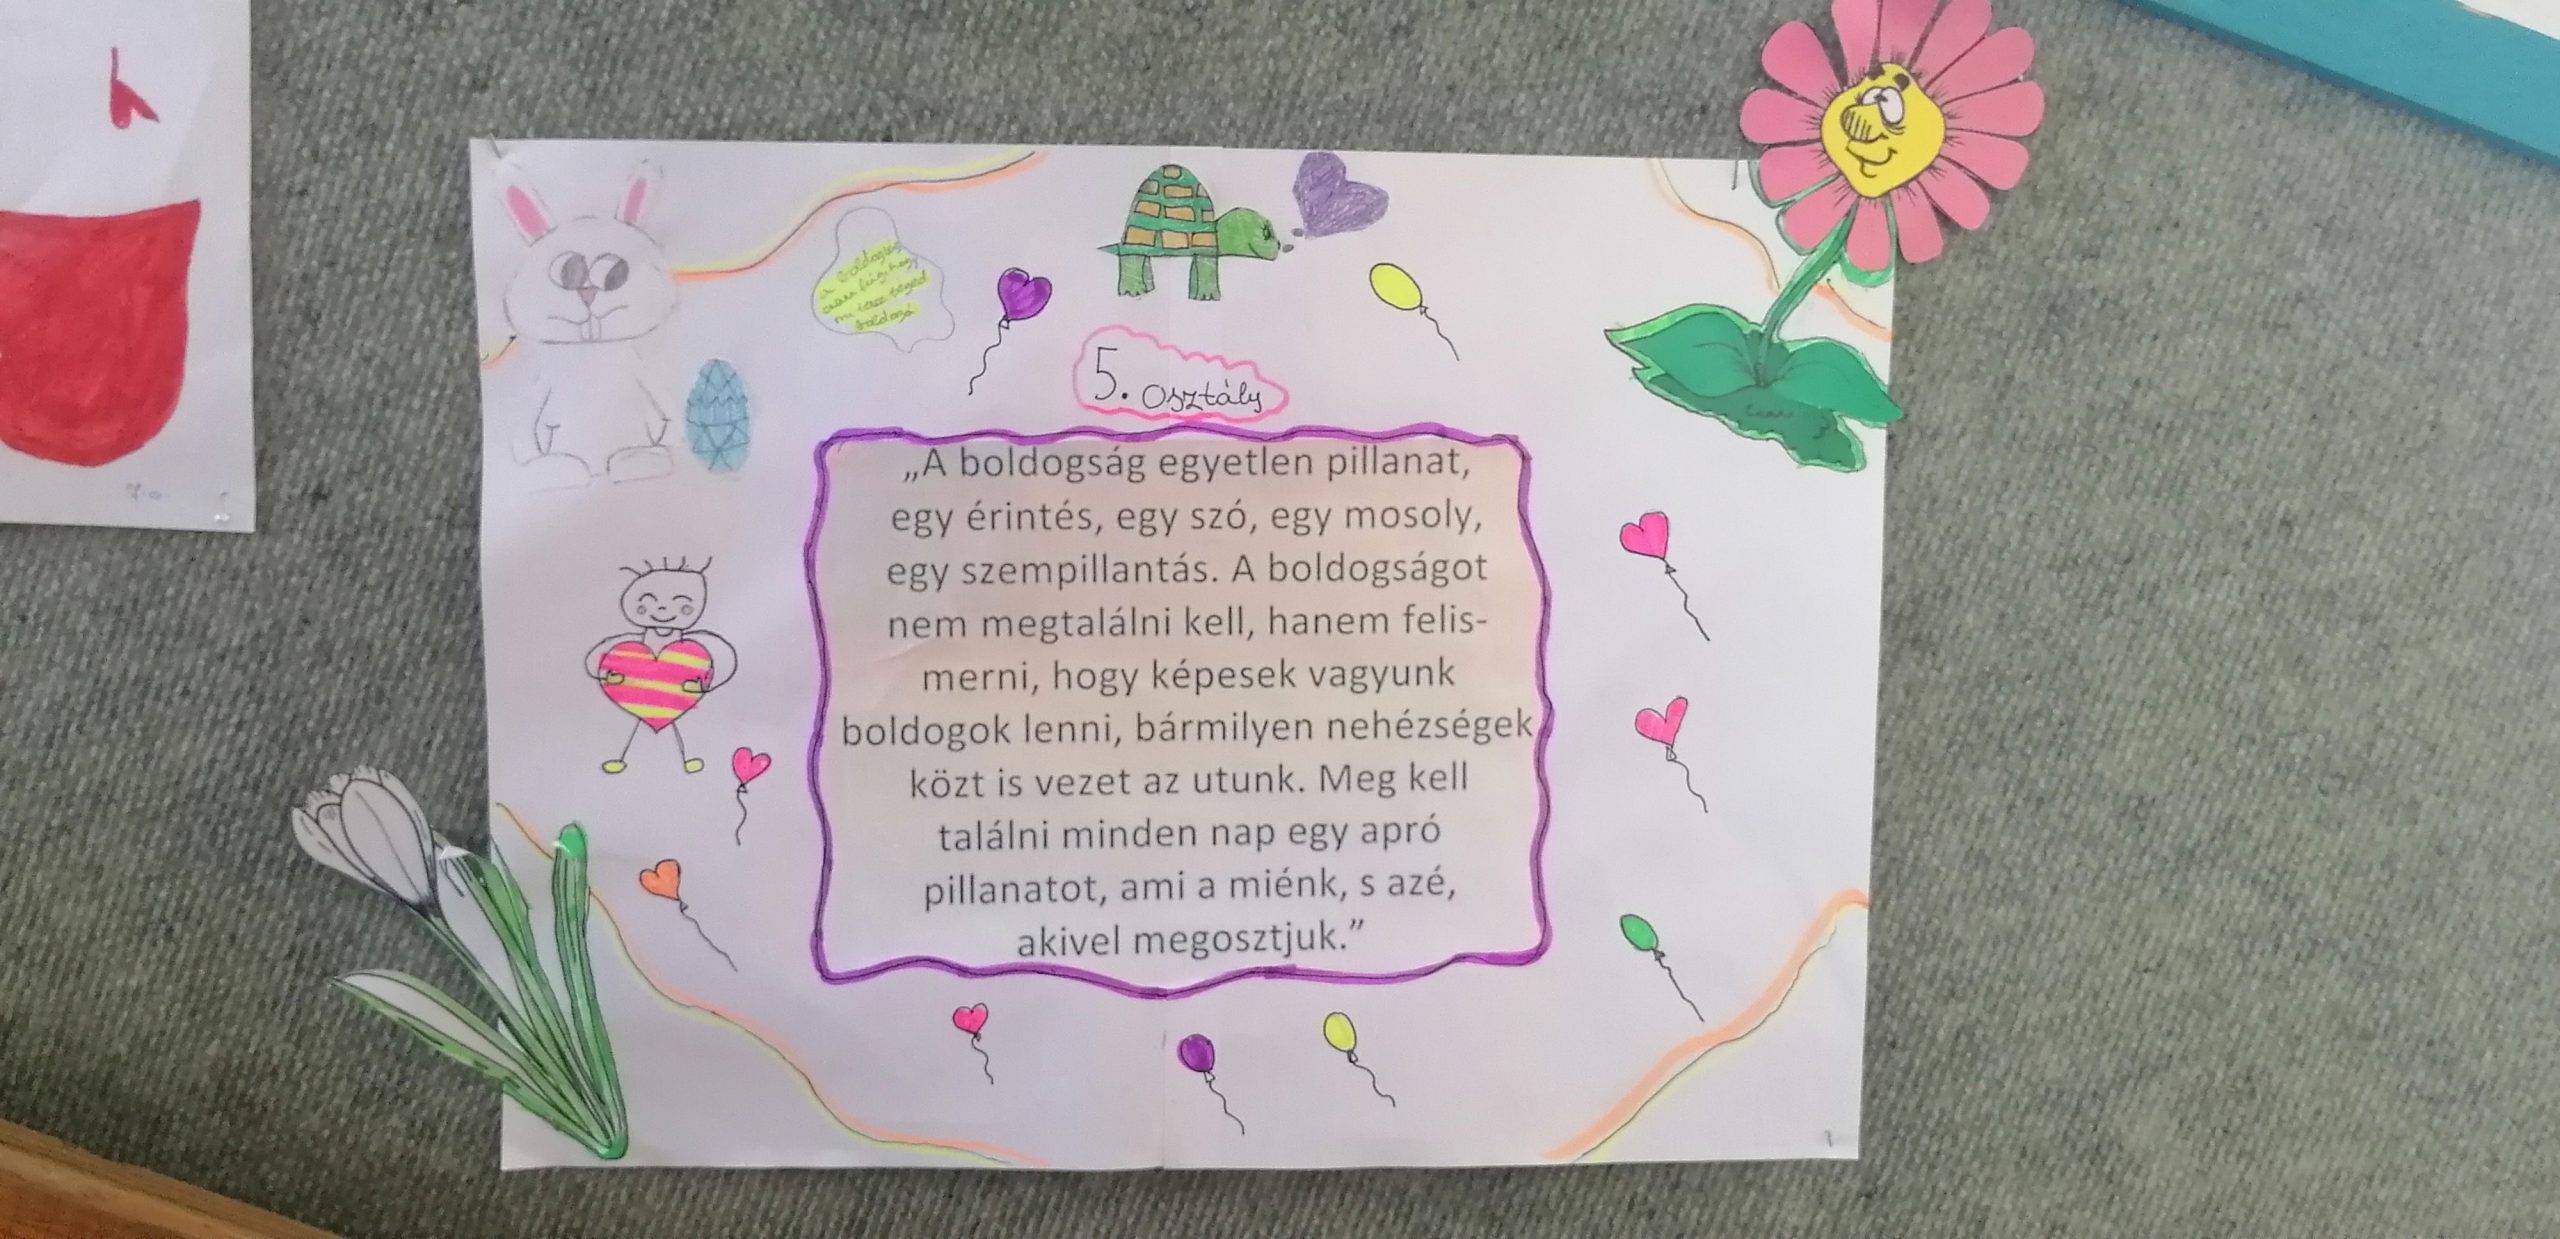 a boldogság
csak
boldoggá
5. osztály
„A boldogság egyetlen pillanat,
egy érintés, egy szó, egy mosoly,
egy szempillantás. A boldogságot
nem megtalálni kell, hanem felis-
merni, hogy képesek vagyunk
boldogok lenni, bármilyen nehézségek
közt is vezet az utunk. Meg kell
találni minden nap egy apró
pillanatot, ami a miénk, s azé,
akivel megosztjuk.”